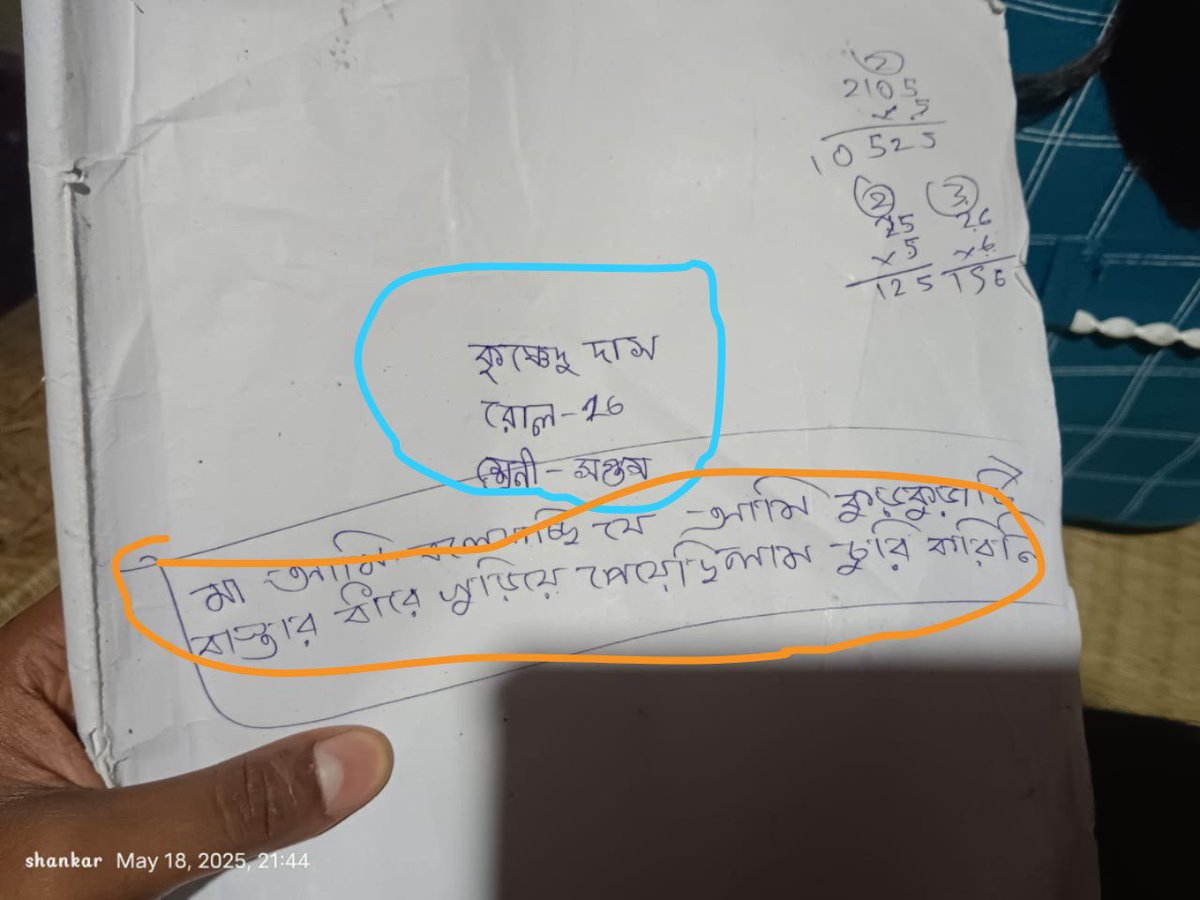 2
2105
× 5
10525
2 3
25 26
×5 ×6
125 156
কৃষ্ণেন্দু দাস
রোল-26
শ্রেনী - সপ্তম
মা আমি বলে যাচ্ছি যে আমি কুড়কুড়াটি
রাস্তার ধারে কুড়িয়ে পেয়েছিলাম চুরি করিনি
shankar May 18, 2025, 21:44